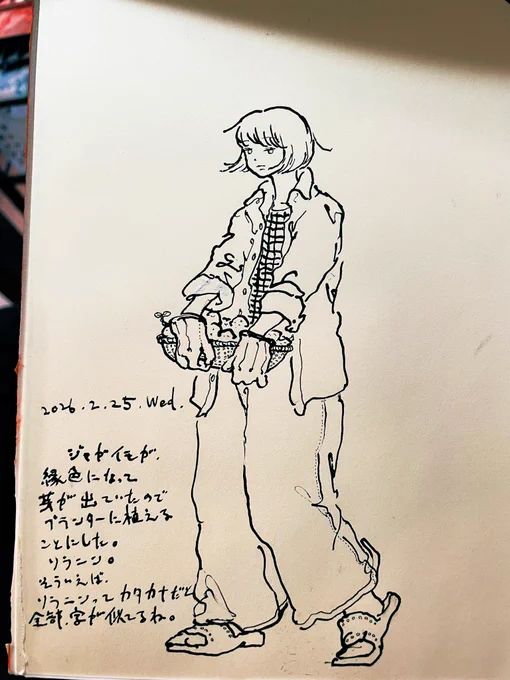 2026.2.25.Wed.
ジャガイモが、
緑色になって
芽が出ていたので
プランターに植える
ことにした。
ソラニン。
そういえば、
ソラニンってカタカナだと
全部、字が似てるね。